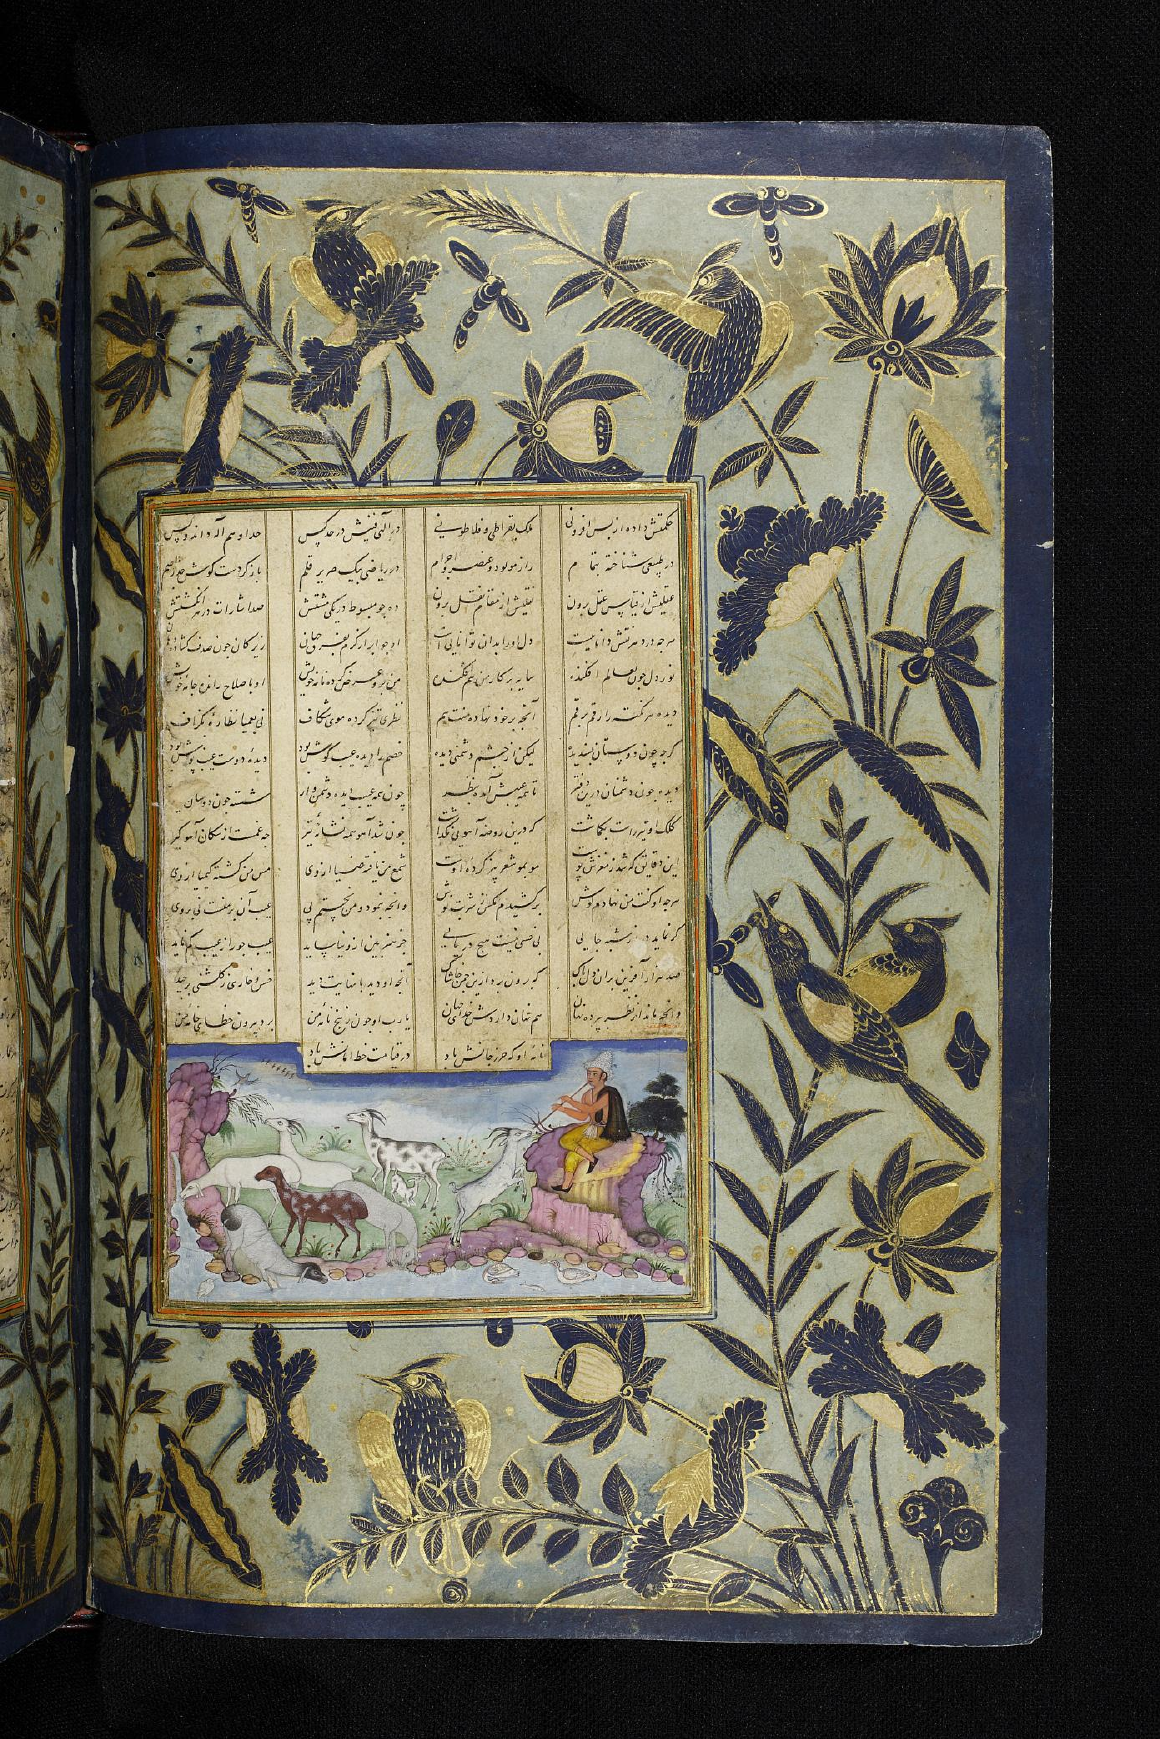 حکمتش داده از بس افزونی ملک بقراطی و فلاطونی در الهی
در طبیعی شناخته بتمام راز مولود و عنصر و اجرام در ریاضی بیک صریر قلم باز کرد ست گوش جذر اصم
عقلیش از قیاس عقل برون نقلیش از مقام نقل برون ده چو مبسوط در یکی مشتش صد اشارات در هر انگشتش
هر چه در دهر دانائیست دل او را بدان توانائی است او چو ابر از کرم بفرق جهان زیرکان چون صدف گشاده دهان
نور دل چون بعالم افکنده سایه بر کار من هم افکنده من برو عرض کرده نامه خویش او باصلاح رانده خامه خویش
دیده هر نکته را رقم برقم آنچه بر خود نهاده منت هم نظر تیز کرده موی شکاف نی بعمیا نظاره گزاف
گرچه چون دوستان پسندیده لیکن از چشم دشمنی دیده خصم را دیده عیب کوش بود دیده دوست عیب پوش بود
دیده چون دشمنان درین دفتر تا همه عیبش آمده بنظر چون همه عیب دیده دشمن وار شسته چون دوستان
کلک او تیر راست که درین روضه آهوئی نگذاشت چون شد آهو همه نشانه تیر چه غمست از سگان آهو گیر
این دقایق که شد ز مغزش پوست مو بمو شعر کرده اوست شمع من یافته ضیا از وی مس من گشته کیمیا از وی
هر چه او گفت من نهادم گوش برکشیدم مگس ز شربت نوش وانچه ننمود و من نجستم پی عیب آن بر منست نی بر وی
گر نماید جایی نی خسی نیست هیچ دریایی جز هنر بین عیب جو را ز عیب کم ناید
صد هزار آفرین بران دل پاک که برون برد ازین چمن خاشاک آنچه او دید با نهایت دید خس و خاری ز گلشنی برچید
وانچه ماند از نظر پرده نهان هم نهان داردش خدای جهان یا رب او چون ز رنج نامه من برد بیرون خطای خامه من
نامه او که حرز جانش باد در قیامت خط امانش باد